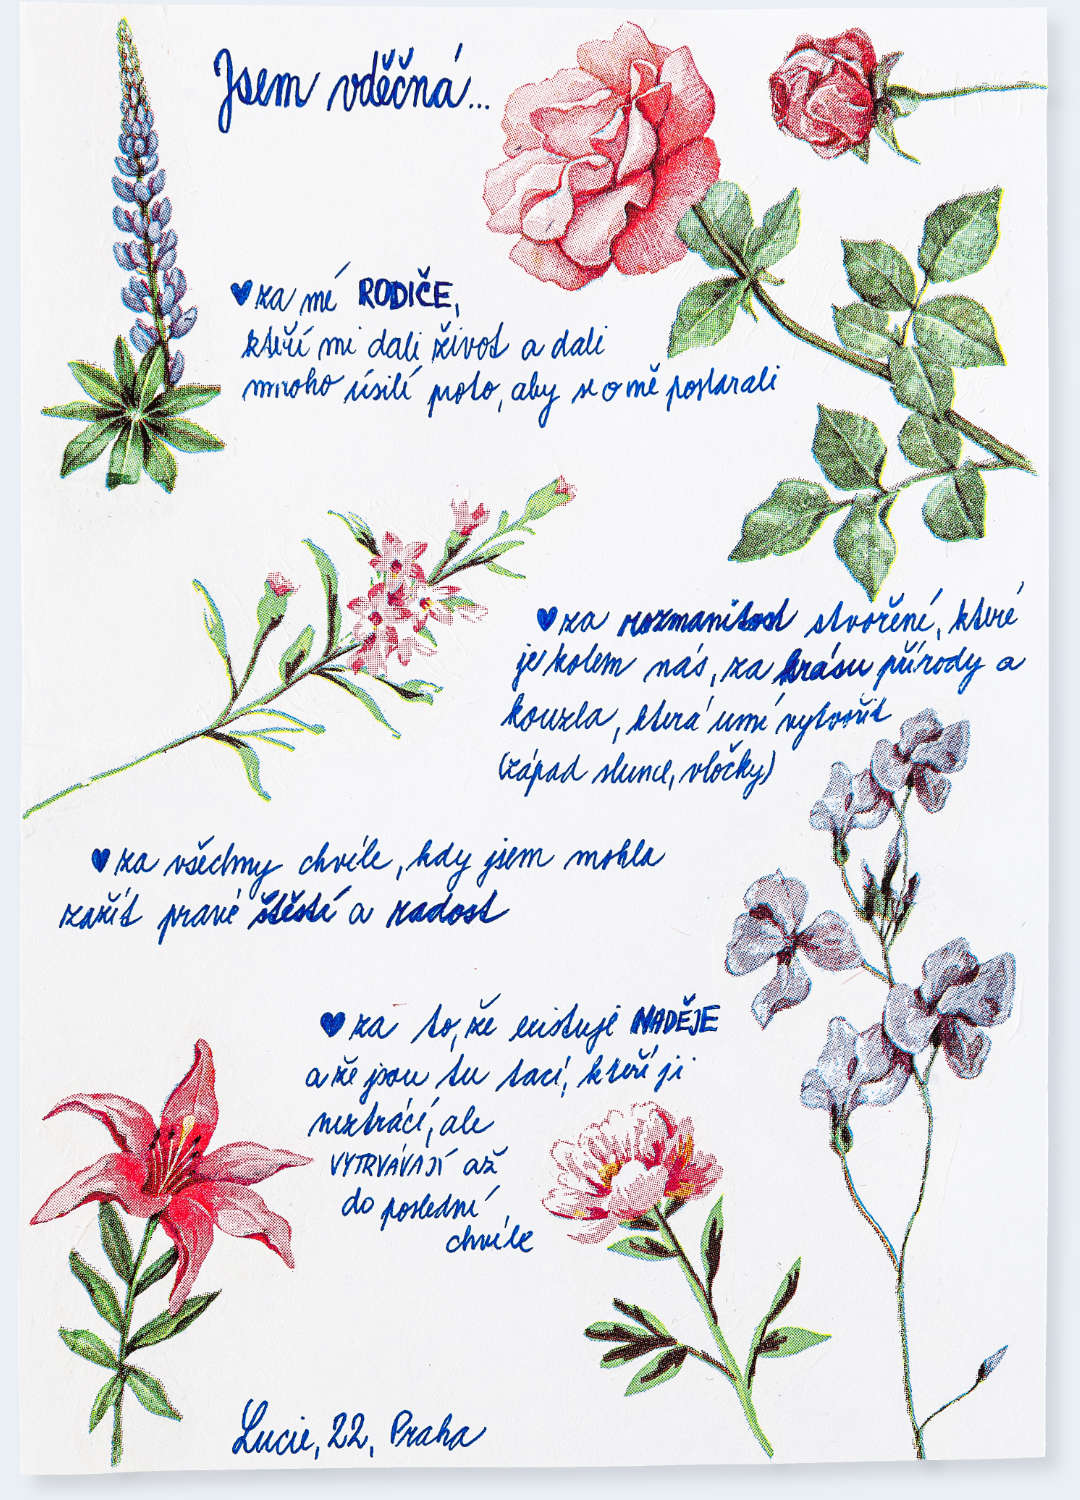 Jsem vděčná...
♥ za mé RODIČE,
kteří mi dali život a dali
mnoho úsilí proto, aby se o mě postarali
♥ za rozmanitost stvoření, které
je kolem nás, za krásu přírody a
kouzla, která umí vytvořit
(západ slunce, vločky)
♥ za všechny chvíle, kdy jsem mohla
zažít pravé štěstí a radost
♥ za to, že existuje NADĚJE
a že jsou tu tací, kteří ji
neztrácí, ale
VYTRVÁVAJÍ až
do poslední
chvíle
Lucie, 22, Praha